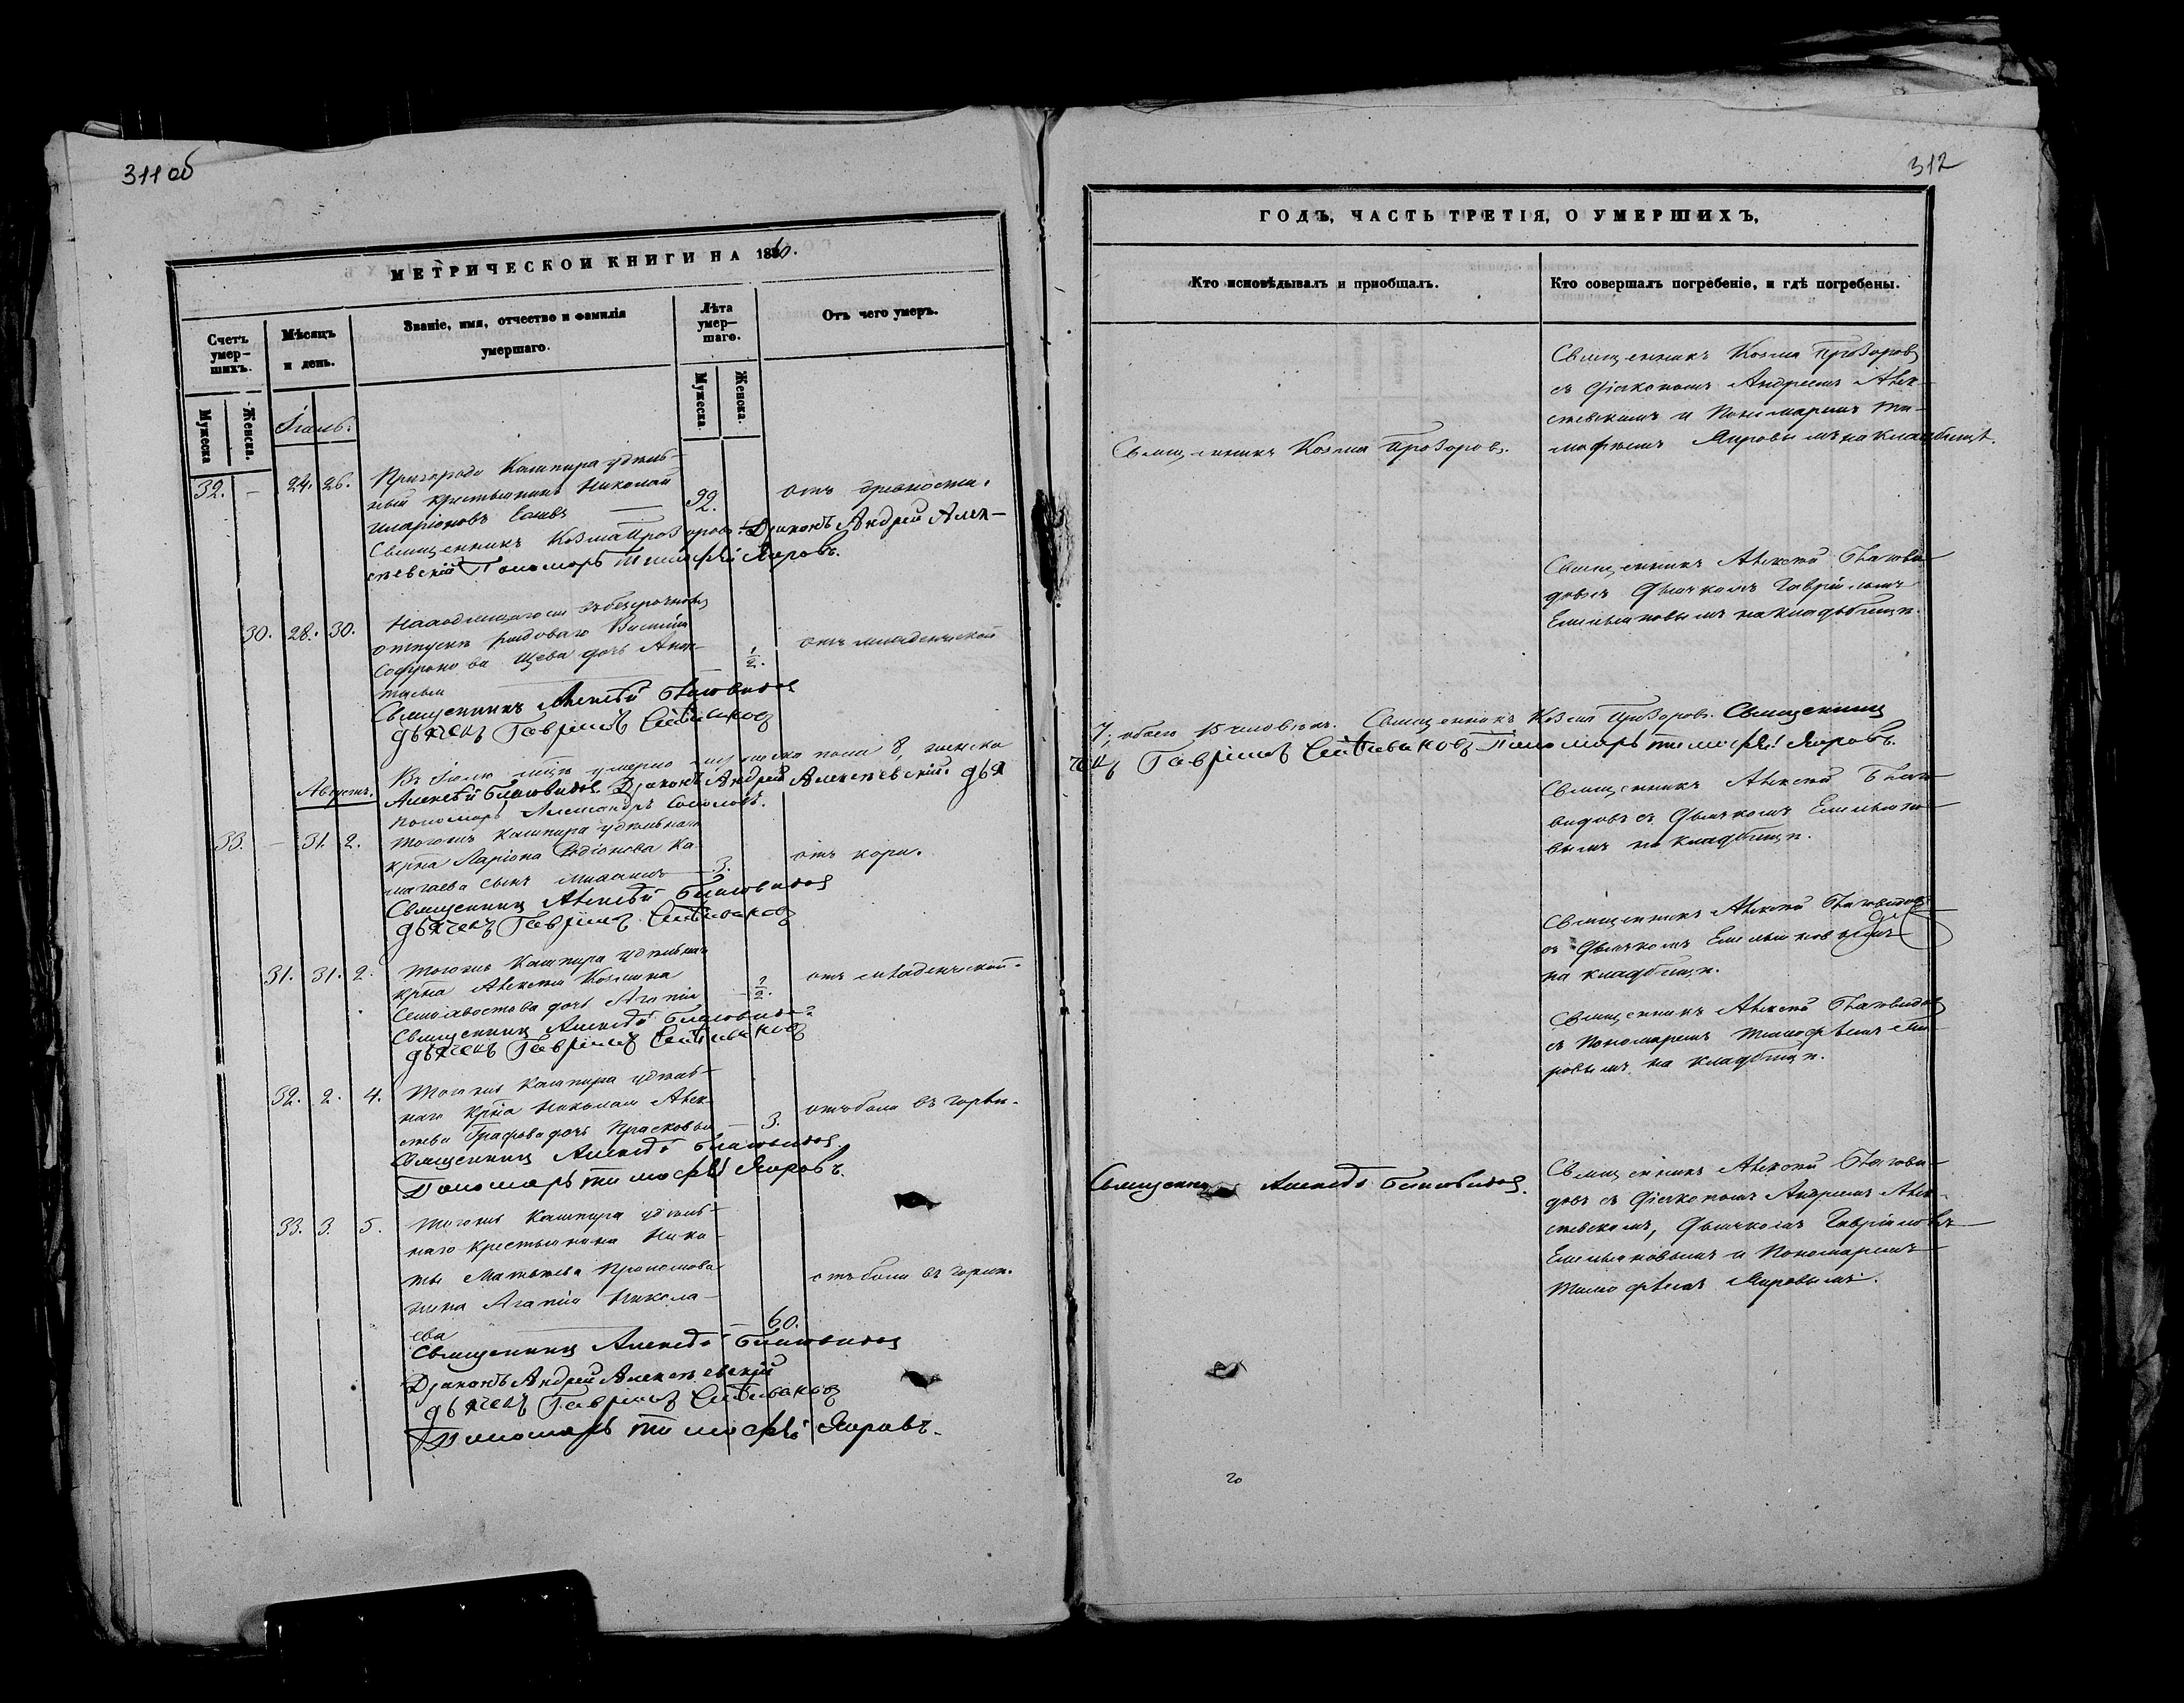 311 об
МЕТРИЧЕСКОЙ КНИГИ НА 1860.
Счетъ умер-шихъ.
Мужеска
Женска.
Мѣсяцъ и день.
Званіе, имя, отчество и фамилія умершаго.
Лѣта умер-шаго.
Мужеска.
Женска.
Отъ чего умеръ.
Іюль.
32. — 24. 26.
Пригорода Кашпира удѣль-
ный крестьянинъ Николай
Иларіоновъ — 92. отъ древности.
Священникъ Козма Прозоровъ. Діаконъ Андрей Алек-
сѣевскій Пономарь Тимофѣй Яировъ.
30. 28. 30.
Находящагося въ безсрочномъ
отпускѣ рядоваго Василія
Софронова Щева дочь Анас-
тасья — 1/2. отъ младенческой
Священникъ Алексѣй Благовидовъ
дьячекъ Гавріилъ Емельяновъ
Въ Іюлѣ мцѣ умерло мужеска пола 8, женска
Алексѣй Благовидовъ. Діаконъ Андрей Алексѣевскій. дья
пономарь Александръ Соколовъ.
Августъ.
33. — 31. 2.
Тогожъ Кашпира удѣльнаго
крна Ларіона Родіонова Ка
магаева сынъ — 3. отъ кори.
Священникъ Алексѣй Благовидовъ
дьячекъ Гавріилъ Емельяновъ
31. 31. 2.
Тогожъ Кашпира удѣльнаго
крна Алексѣя Козмина
Семохвостова дочь Агапія — 1/2. отъ младенческой.
Священникъ Алексѣй Благовидовъ
дьячекъ Гавріилъ Емельяновъ
32. 2. 4.
Тогожъ Кашпира удѣль-
наго крна Николая Алек-
сѣева Графова дочь Прасковья — 3. отъ боли въ горлѣ.
Священникъ Алексѣй Благовидовъ.
Пономарь Тимофѣй Яировъ.
33. 3. 5.
Тогожъ Кашпира удѣль-
наго крестьянина Ники-
ты Матвѣева
жена Агапія Никола- отъ боли въ горлѣ.
ева — 60.
Священникъ Алексѣй Благовидовъ
Діаконъ Андрей Алексѣевскій
дьячекъ Гавріилъ Емельяновъ
Пономарь Тимофѣй Яировъ.
312
ГОДЪ, ЧАСТЬ ТРЕТІЯ, О УМЕРШИХЪ,
Кто исповѣдывалъ и приобщалъ.
Кто совершалъ погребеніе, и гдѣ погребены.
Священникъ Козма Прозоровъ.
Священникъ Козма Прозоровъ
съ Діакономъ Андреемъ Алек-
сѣевскимъ и Пономаремъ Ти-
мофѣемъ Яировымъ на кладбищѣ.
Священникъ Алексѣй Благови-
довъ съ Дьячкомъ Гавріиломъ
Емельяновымъ на кладбищѣ.
7, обоего 15 человѣкъ. Священникъ Козма Прозоровъ. Священникъ
чекъ Гавріилъ Емельяновъ Пономарь Тимофѣй Яировъ.
Священникъ Алексѣй Благо-
видовъ съ Дьячкомъ Емельяно-
вымъ на кладбищѣ.
Священникъ Алексѣй Благовидовъ
съ Дьячкомъ Емельяновымъ
на кладбищѣ.
Священникъ Алексѣй Благовидовъ
съ Пономаремъ Тимофѣемъ Яи-
ровымъ на кладбищѣ.
Священникъ Алексѣй Благовидовъ.
Священникъ Алексѣй Благови-
довъ съ Діакономъ Андреемъ Алек-
сѣевскимъ, Дьячкомъ Гавріиломъ
Емельяновымъ и Пономаремъ
Тимофѣемъ Яировымъ.